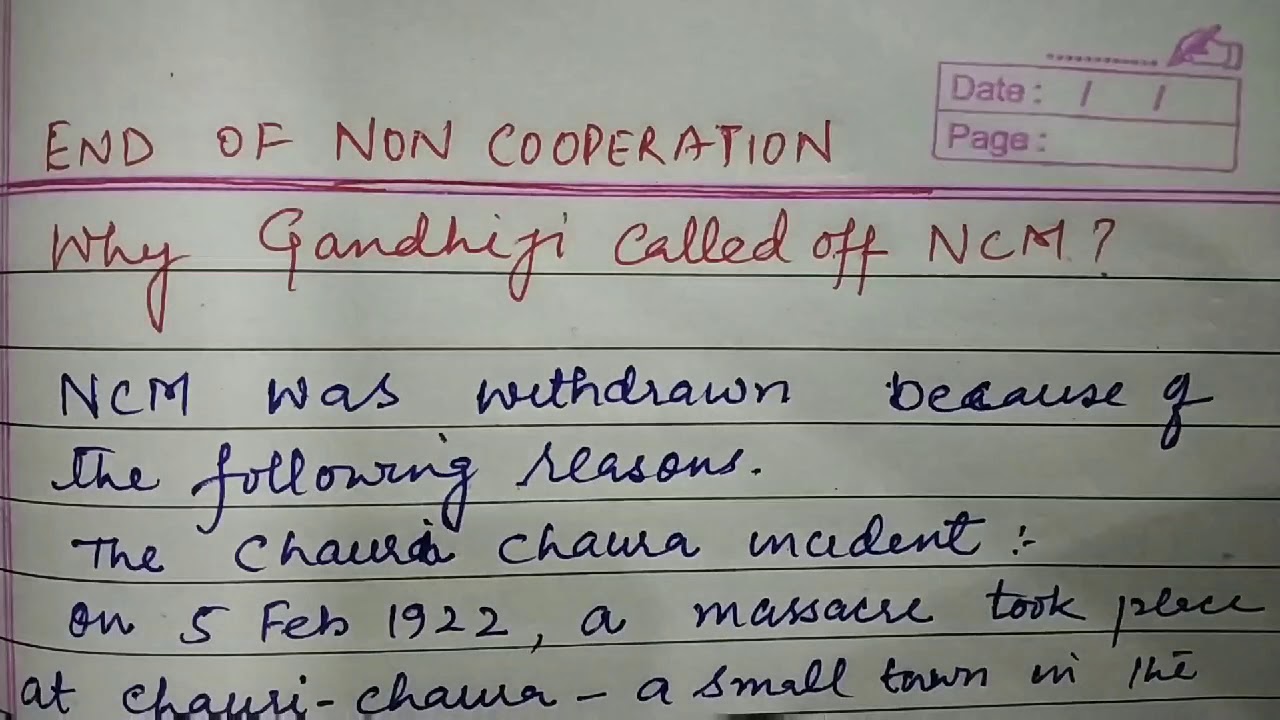 Date: / /
Page:
END OF NON COOPERATION
Why Gandhiji called off NCM?
NCM was withdrawn because of
the following reasons.
The Chauri chaura incident :-
on 5 Feb 1922, a massacre took place
at chauri-chaura - a small town in the